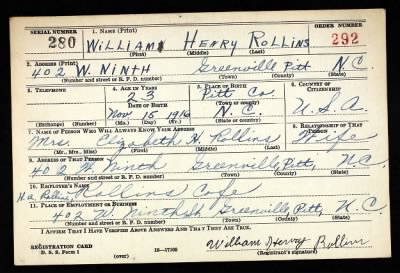 SERIAL NUMBER 1. NAME (Print) ORDER NUMBER
280 WILLIAM HENRY ROLLINS 292
(First) (Middle) (Last)
2. ADDRESS (Print)
402 W. NINTH Greenville Pitt N.C.
(Number and street or R. F. D. number) (Town) (County) (State)
3. TELEPHONE 4. AGE IN YEARS 5. PLACE OF BIRTH 6. COUNTRY OF CITIZENSHIP
23 Pitt Co.
DATE OF BIRTH (Town or county)
Nov. 15 1916 N.C. U.S.A.
(Exchange) (Number) (Mo.) (Day) (Yr.) (State or country)
7. NAME OF PERSON WHO WILL ALWAYS KNOW YOUR ADDRESS 8. RELATIONSHIP OF THAT PERSON
Mrs. H. Rollins Wife
(Mr., Mrs., Miss) (First) (Middle) (Last)
9. ADDRESS OF THAT PERSON
402 W. Ninth Greenville, Pitt, N.C.
(Number and street or R. F. D. number) (Town) (County) (State)
10. EMPLOYER'S NAME
Rollins Cafe
11. PLACE OF EMPLOYMENT OR BUSINESS
402 W. Ninth St. Greenville, Pitt, N.C.
(Number and street or R. F. D. number) (Town) (County) (State)
I AFFIRM THAT I HAVE VERIFIED ABOVE ANSWERS AND THAT THEY ARE TRUE.
REGISTRATION CARD
D. S. S. Form 1 (over) 16—17105
William Henry Rollins
(Registrant's signature)